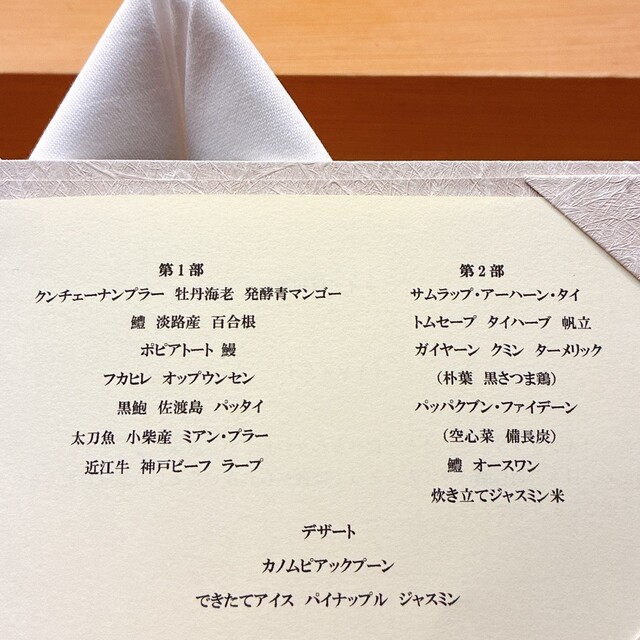 第1部
クンチェーナンプラー 牡丹海老 発酵青マンゴー
鱧 淡路産 百合根
ポピアトート 鰻
フカヒレ オップウンセン
黒鮑 佐渡島 パッタイ
太刀魚 小柴産 ミアン・プラー
近江牛 神戸ビーフ ラープ
第2部
サムラップ・アーハーン・タイ
トムセープ タイハーブ 帆立
ガイヤーン クミン ターメリック
(朴葉 黒さつま鶏)
パッパクブン・ファイデーン
(空心菜 備長炭)
鱧 オースワン
炊き立てジャスミン米
デザート
カノムピアックプーン
できたてアイス パイナップル ジャスミン